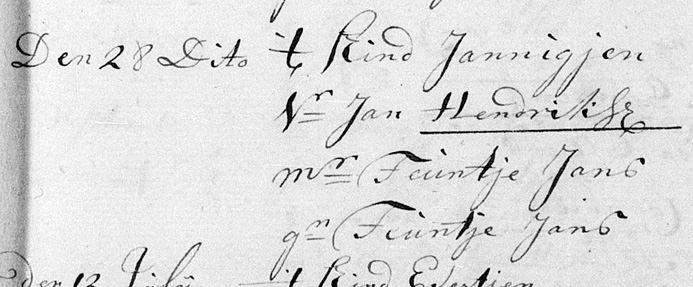 Den 28 Dito 't Kind Jannigjen
Vr Jan Hendriksz
mr Feuntje Jans
gn Feuntje Jans
den 12 July 't Kind Evertjen